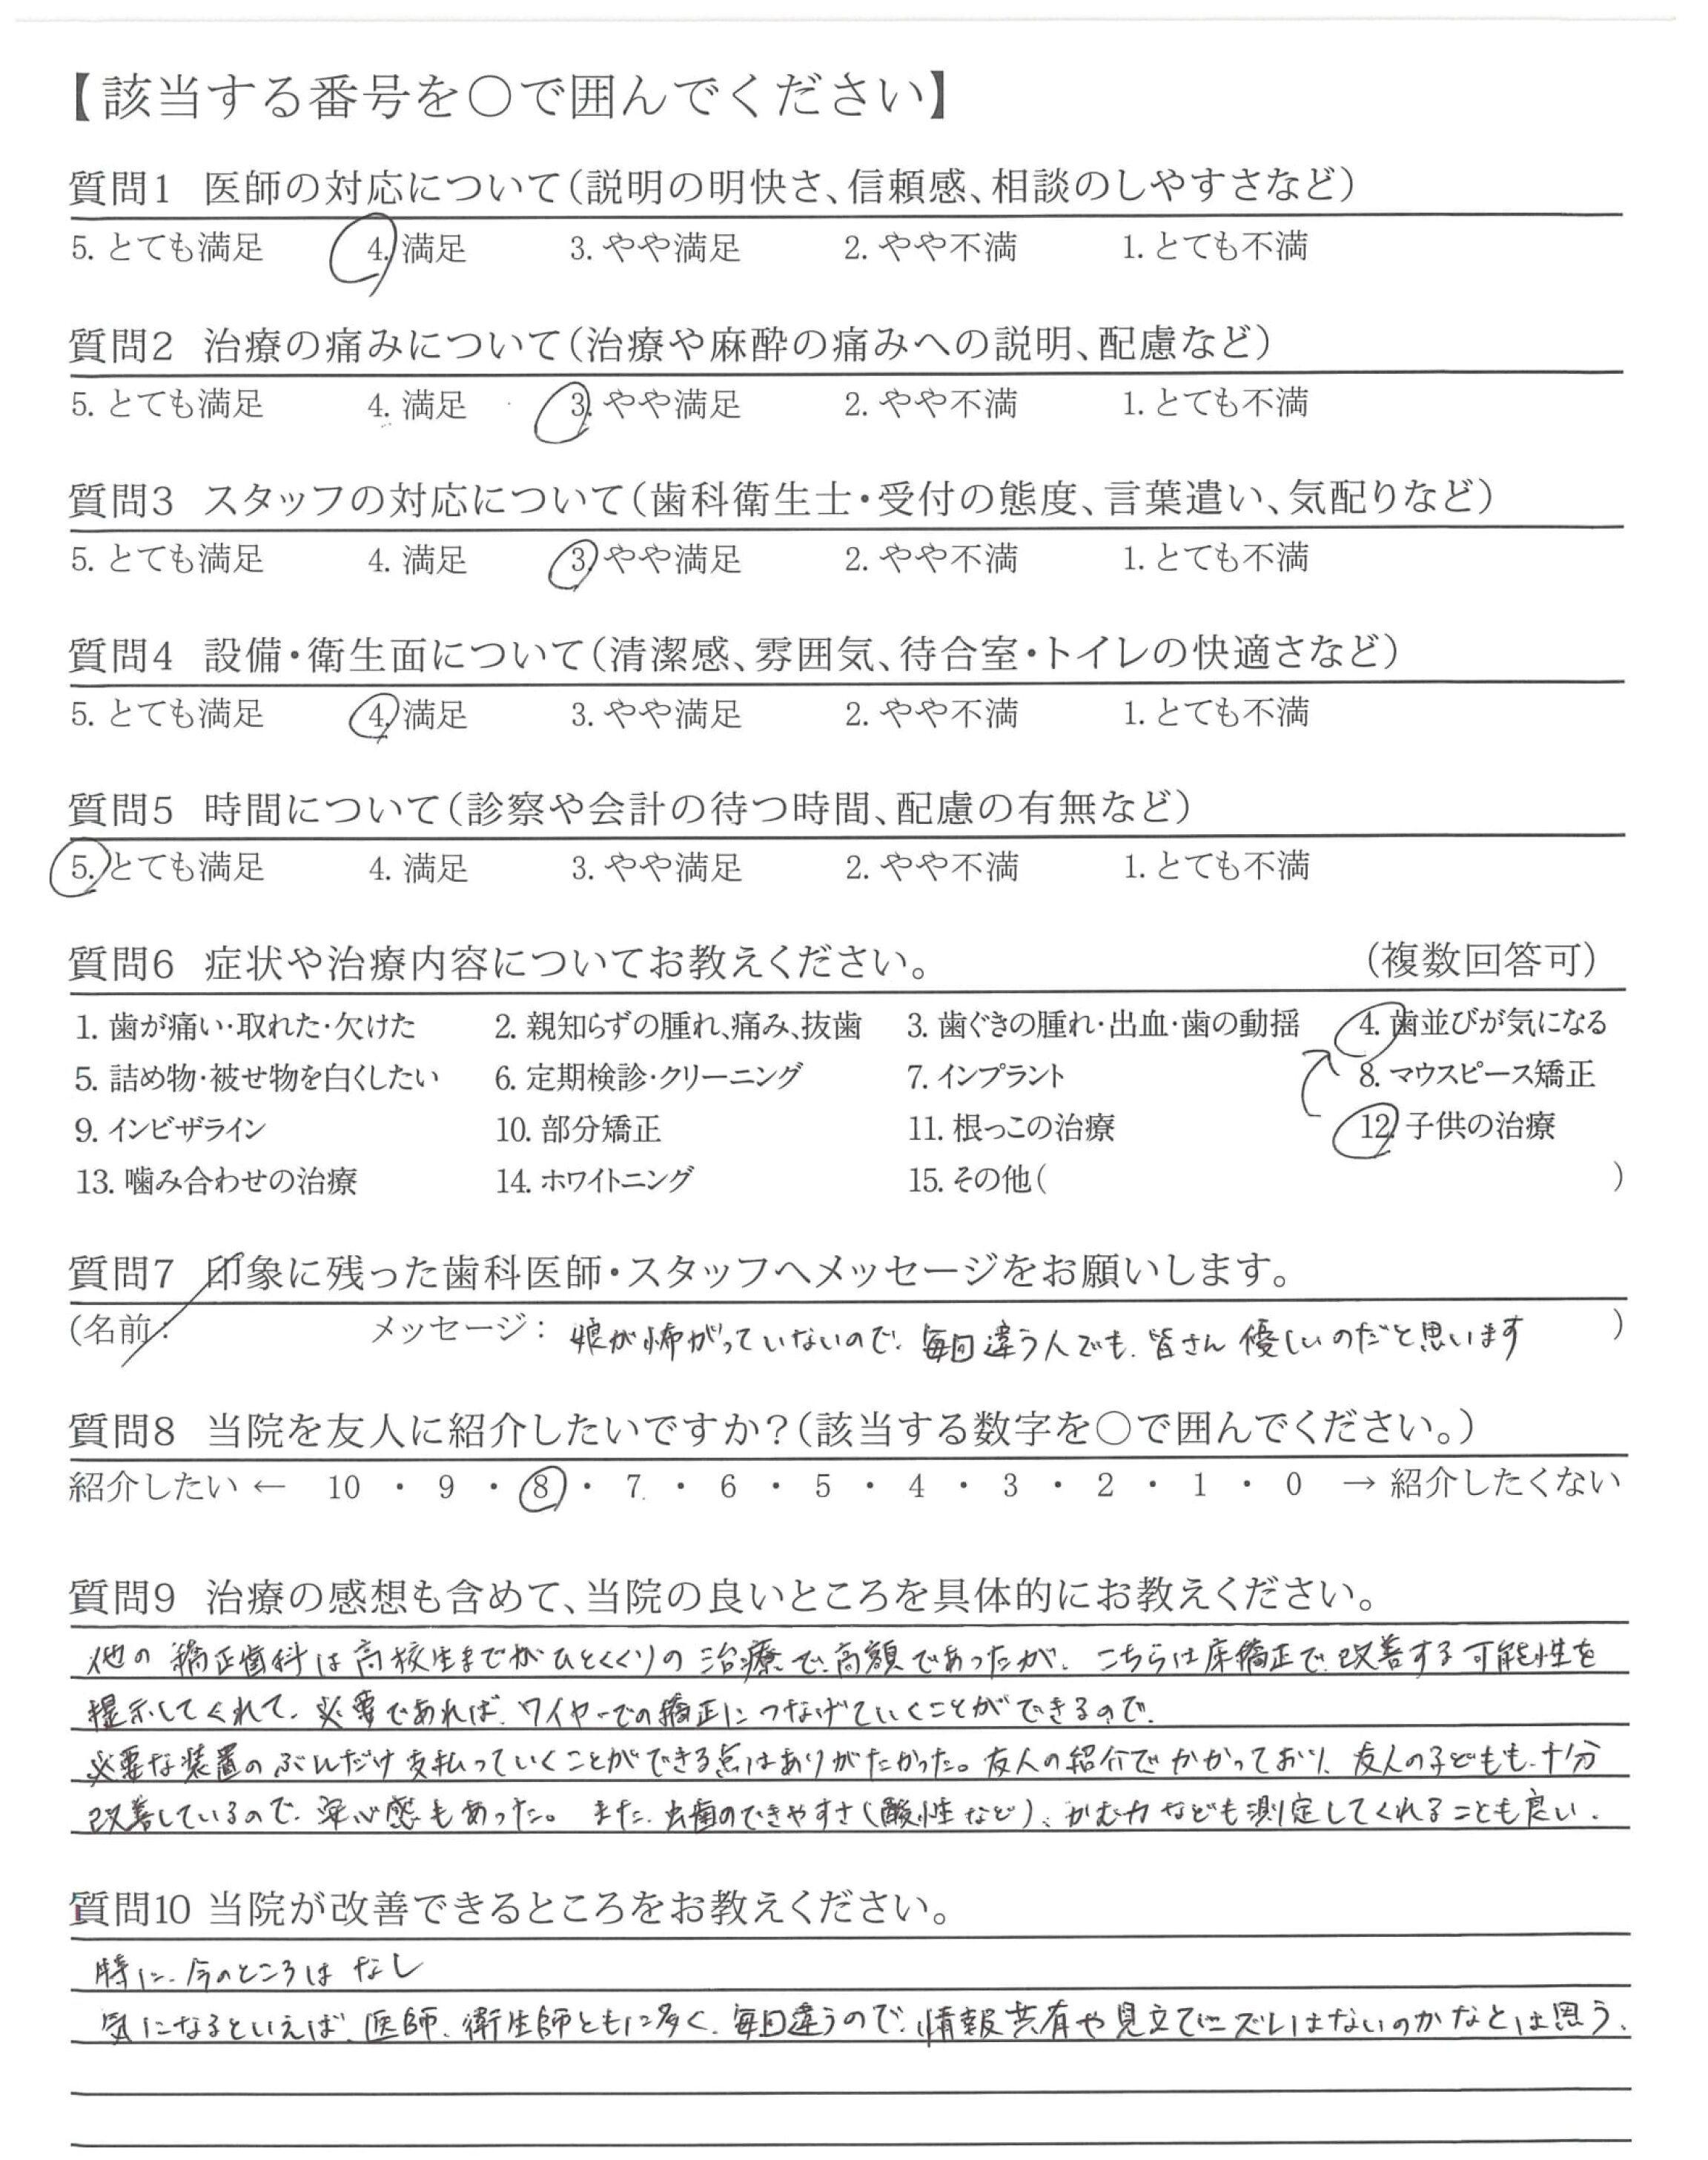 【該当する番号を○で囲んでください】
質問1 医師の対応について(説明の明快さ、信頼感、相談のしやすさなど)
5. とても満足 4. 満足 3. やや満足 2. やや不満 1. とても不満
質問2 治療の痛みについて(治療や麻酔の痛みへの説明、配慮など)
5. とても満足 4. 満足 3. やや満足 2. やや不満 1. とても不満
質問3 スタッフの対応について(歯科衛生士・受付の態度、言葉遣い、気配りなど)
5. とても満足 4. 満足 3. やや満足 2. やや不満 1. とても不満
質問4 設備・衛生面について(清潔感、雰囲気、待合室・トイレの快適さなど)
5. とても満足 4. 満足 3. やや満足 2. やや不満 1. とても不満
質問5 時間について(診察や会計の待つ時間、配慮の有無など)
5. とても満足 4. 満足 3. やや満足 2. やや不満 1. とても不満
質問6 症状や治療内容についてお教えください。 (複数回答可)
1. 歯が痛い・取れた・欠けた 2. 親知らずの腫れ、痛み、抜歯 3. 歯ぐきの腫れ・出血・歯の動揺 4. 歯並びが気になる
5. 詰め物・被せ物を白くしたい 6. 定期検診・クリーニング 7. インプラント 8. マウスピース矯正
9. インビザライン 10. 部分矯正 11. 根っこの治療 12. 子供の治療
13. 噛み合わせの治療 14. ホワイトニング 15. その他( )
質問7 印象に残った歯科医師・スタッフへメッセージをお願いします。
(名前: メッセージ: 娘が怖がっていないので、毎回違う人でも、皆さん優しいのだと思います )
質問8 当院を友人に紹介したいですか?(該当する数字を○で囲んでください。)
紹介したい ← 10 ・ 9 ・ 8 ・ 7 ・ 6 ・ 5 ・ 4 ・ 3 ・ 2 ・ 1 ・ 0 → 紹介したくない
質問9 治療の感想も含めて、当院の良いところを具体的にお教えください。
他の矯正歯科は高校生までがひとくくりの治療で、高額であったが、こちらは床矯正で、改善する可能性を
提示してくれて、必要であれば、ワイヤーでの矯正につなげていくことができるので、
必要な装置のぶんだけ支払っていくことができる点はありがたかった。友人の紹介でかかっており、友人の子どもも、十分
改善しているので、安心感もあった。また、虫歯のできやすさ(酸性など)、かむ力なども測定してくれることも良い。
質問10 当院が改善できるところをお教えください。
特に、今のところは なし
気になるといえば、医師、衛生師ともに多く、毎回違うので、情報共有や見立てにズレはないのかなとは思う、